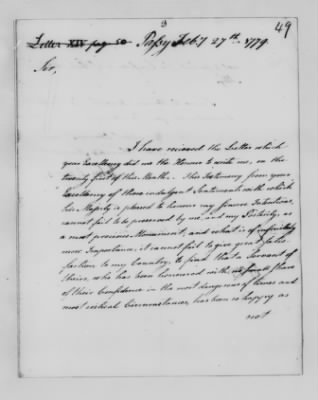 3
49
Letter XIV pag 50 Passy Feb.y 27th. 1779
Sir,
I have received the Letter which
your Excellency did me the Honour to write me, on the
twenty first of this Month. This Testimony from your
Excellency of those indulgent Sentiments with which
his Majesty is pleased to honour my sincere Intentions,
cannot fail to be preserved by me, and my Posterity, as
a most precious Monument, and what is of infinitely
more Importance, it cannot fail to give great Satis-
faction to my Country, to find that a Servant of
theirs, who has been honoured with no small Share
of their Confidence in the most dangerous of times and
most critical Circumstances, has been so happy as
not